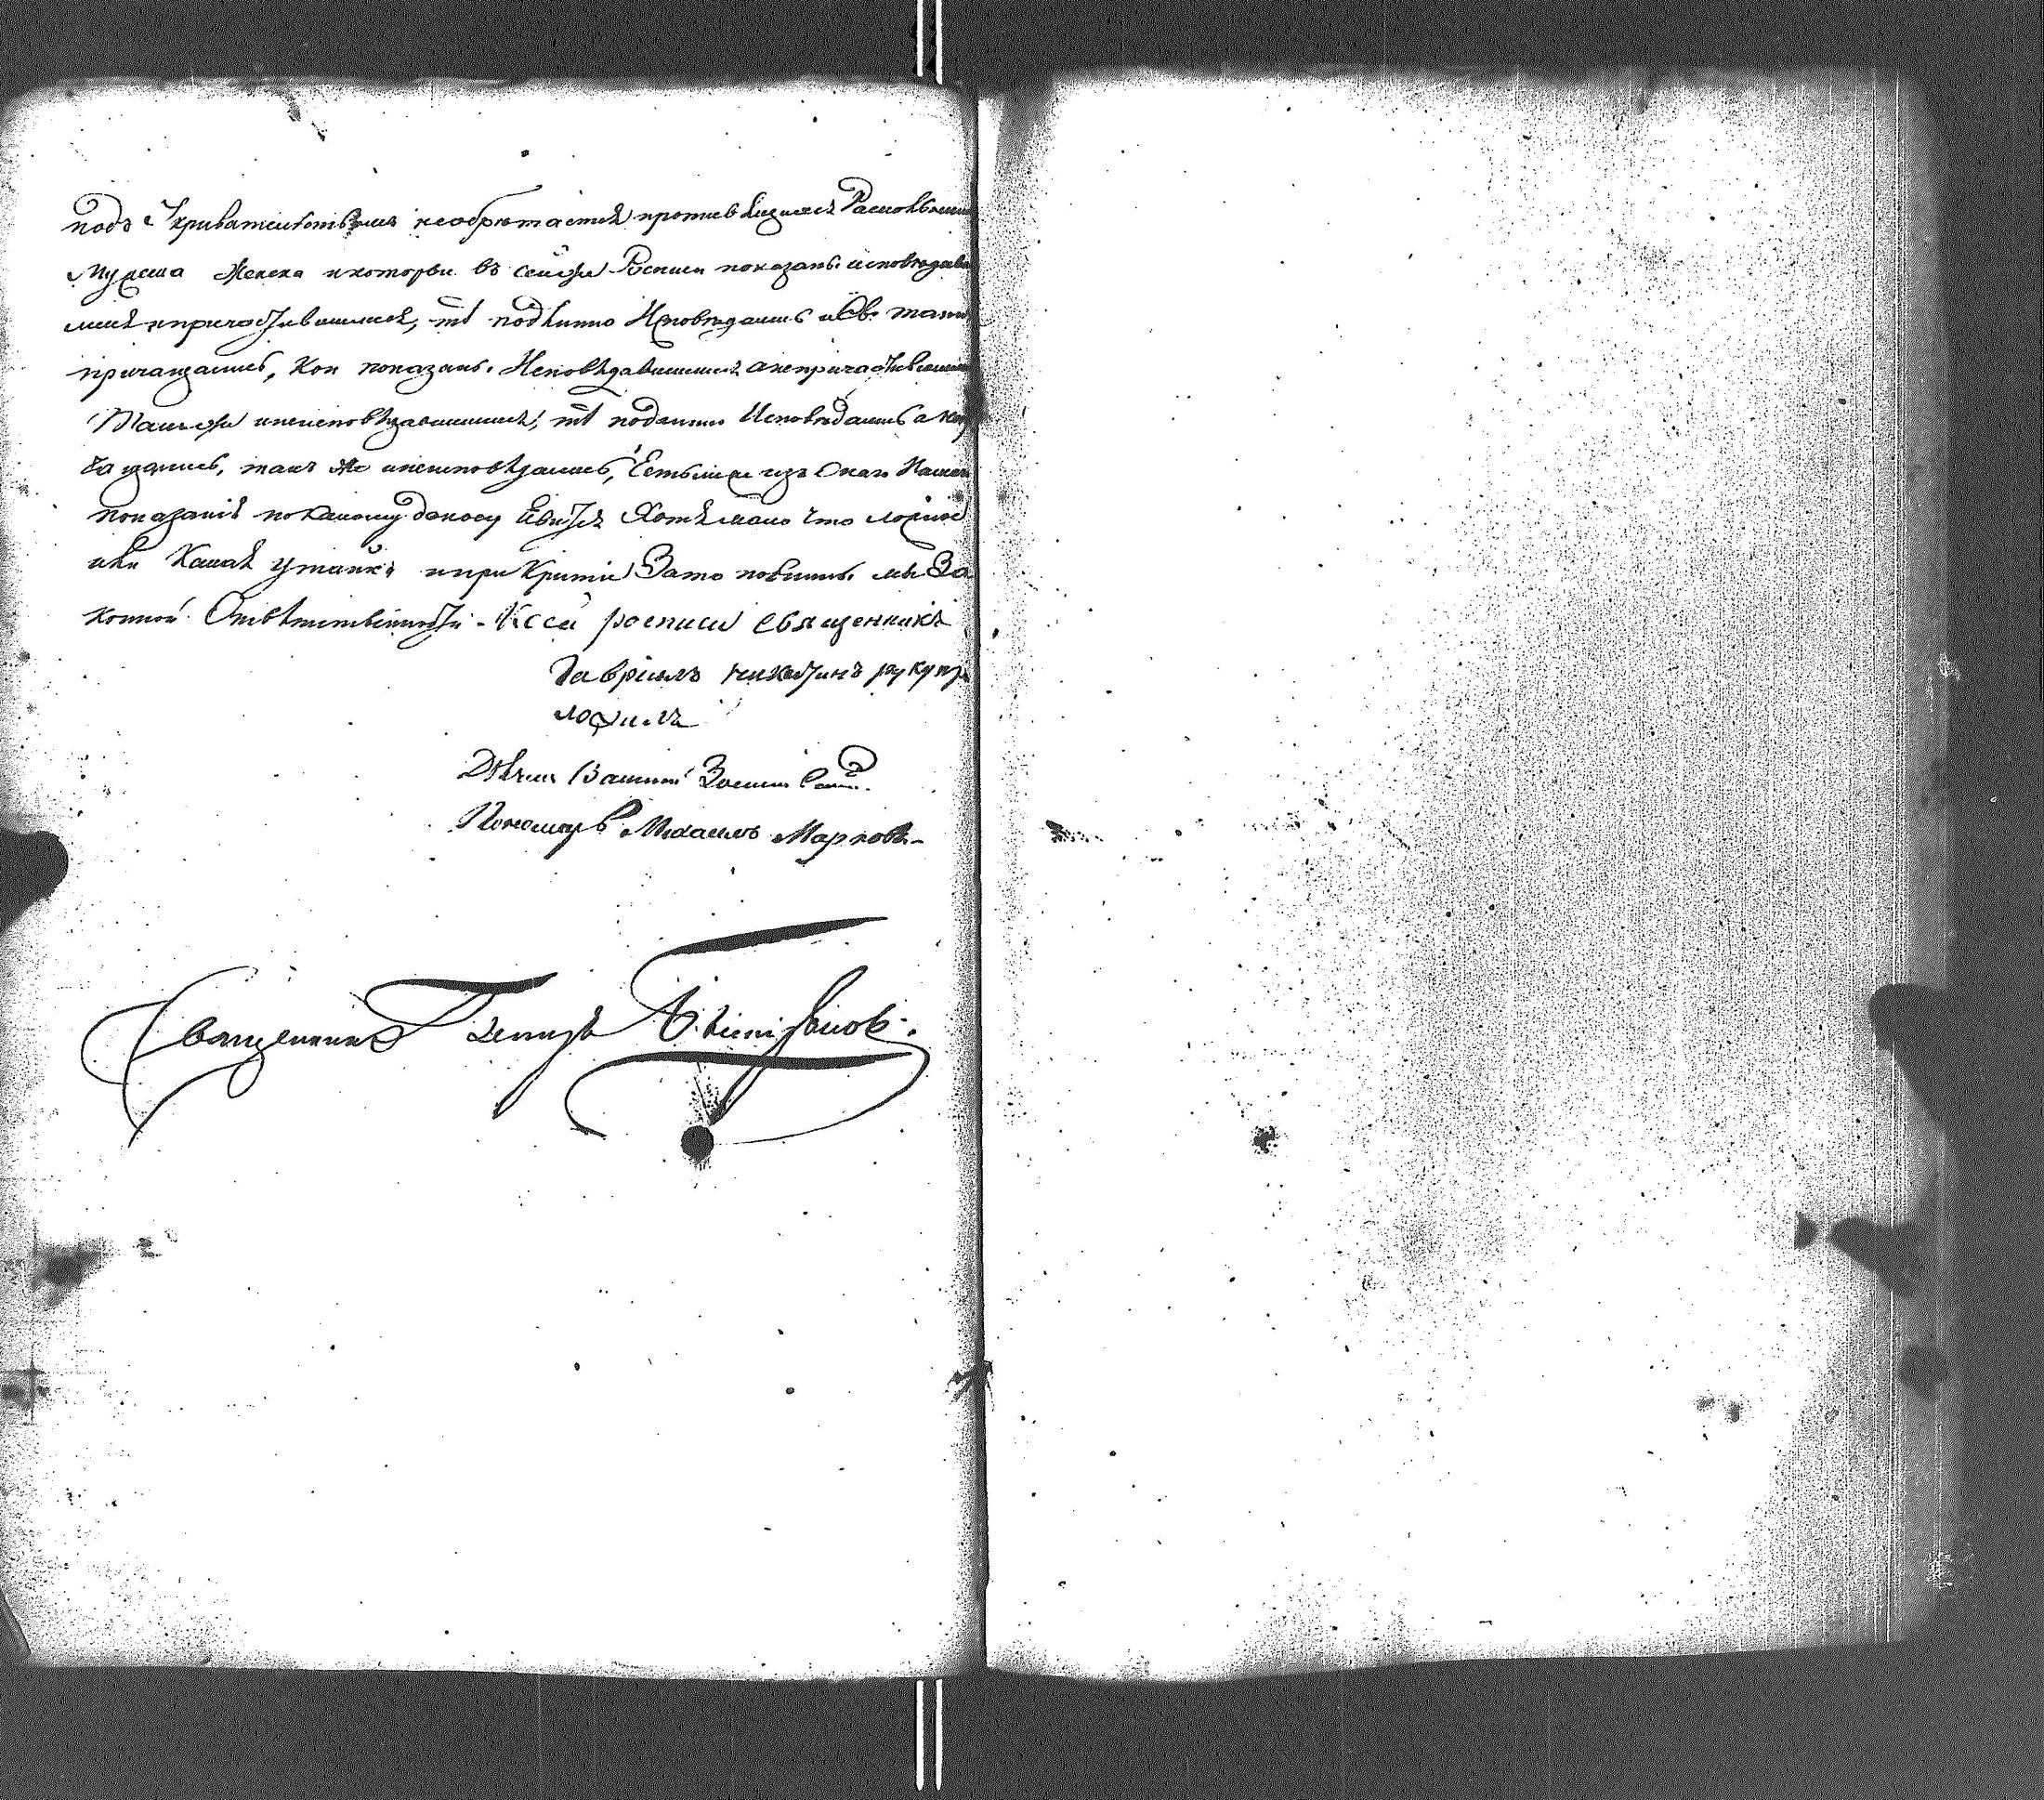 подъ Укривателствомъ необрѣтается противъ
Мужеска Женска и которыи въ сейже Росписи показаны исповѣдав
шися и причастившимися, тѣ подлинно Исповѣдались и Св. таин
причащались, кои показаны Исповѣдавшимися а непричастившими
Такъже и неисповѣдавшимися, тѣ подлинно Исповѣдались а неп
ча щались, такъ же и неисповѣдались, Естьлиже изъ Онаго Нашего
показанія покакому доносу явится Хотя мало что ложное
или Какая утайка и прикритіе Зато повинны мы За
конной Отвѣтственности - К сей росписи священникъ
Гавріилъ никитинъ руку при
ложилъ
Дьячекъ
Пономарь Михаилъ Марковъ
Священникъ